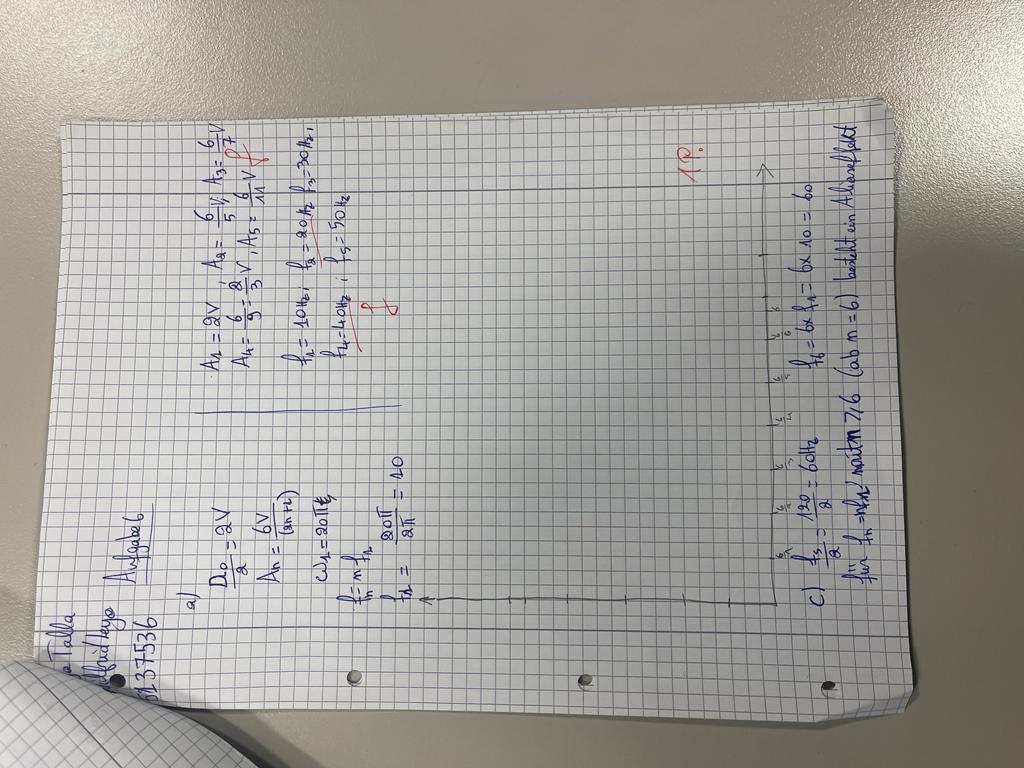 Talla
37536
Aufgabe 6
a) a₀/2 = 2V
Aₙ = 6V/(2n+1)
ω₁ = 20π
fₙ = n f₁
f₁ = 20π/2π = 10
A₁ = 2V, A₂ = 6/5 V, A₃ = 6/7 V
A₄ = 6/9 = 2/3 V, A₅ = 6/11 V f
f₁ = 10Hz, f₂ = 20Hz, f₃ = 30Hz,
f₄ = 40Hz, f₅ = 50Hz
f
1P.
f₁ f₂ f₃ f₄ f₅
c) fs/2 = 120/2 = 60Hz f₆ = 6x f₁ = 6x10 = 60
für fₙ = nf₁, mit n ⩾ 6 (ab n = 6) besteht ein Aliaseffekt